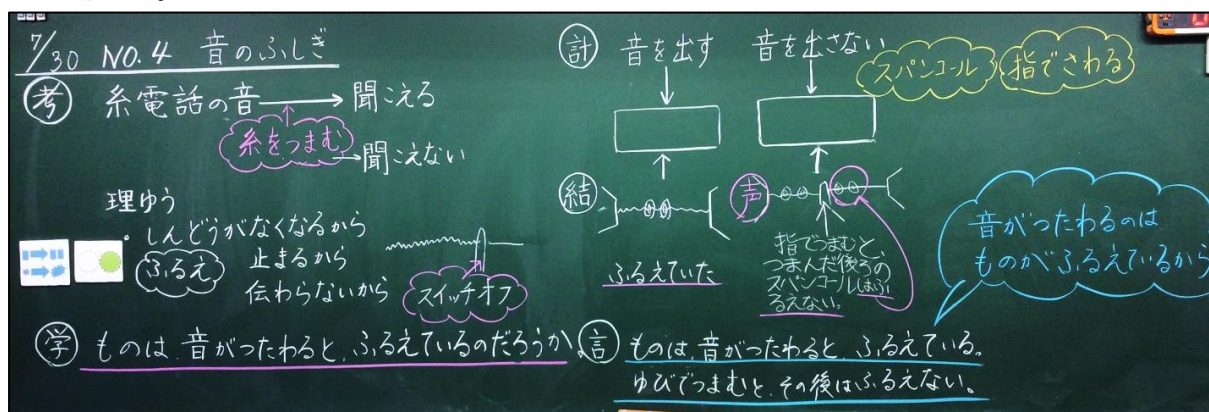 7/30 NO.4 音のふしぎ
考 糸電話の音→聞こえる
糸をつまむ
→聞こえない
理ゆう
・しんどうがなくなるから
ふるえ
止まるから
伝わらないから
スイッチオフ
学 ものは、音がつたわると、ふるえているのだろうか。
計 音を出す 音を出さない
スパンコール 指でさわる
結
声
ふるえていた
指でつまむと、
つまんだ後ろの
スパンコールはふ
るえない。
音がつたわるのは
ものがふるえているから
言 ものは、音がつたわると、ふるえている。
ゆびでつまむと、その後はふるえない。